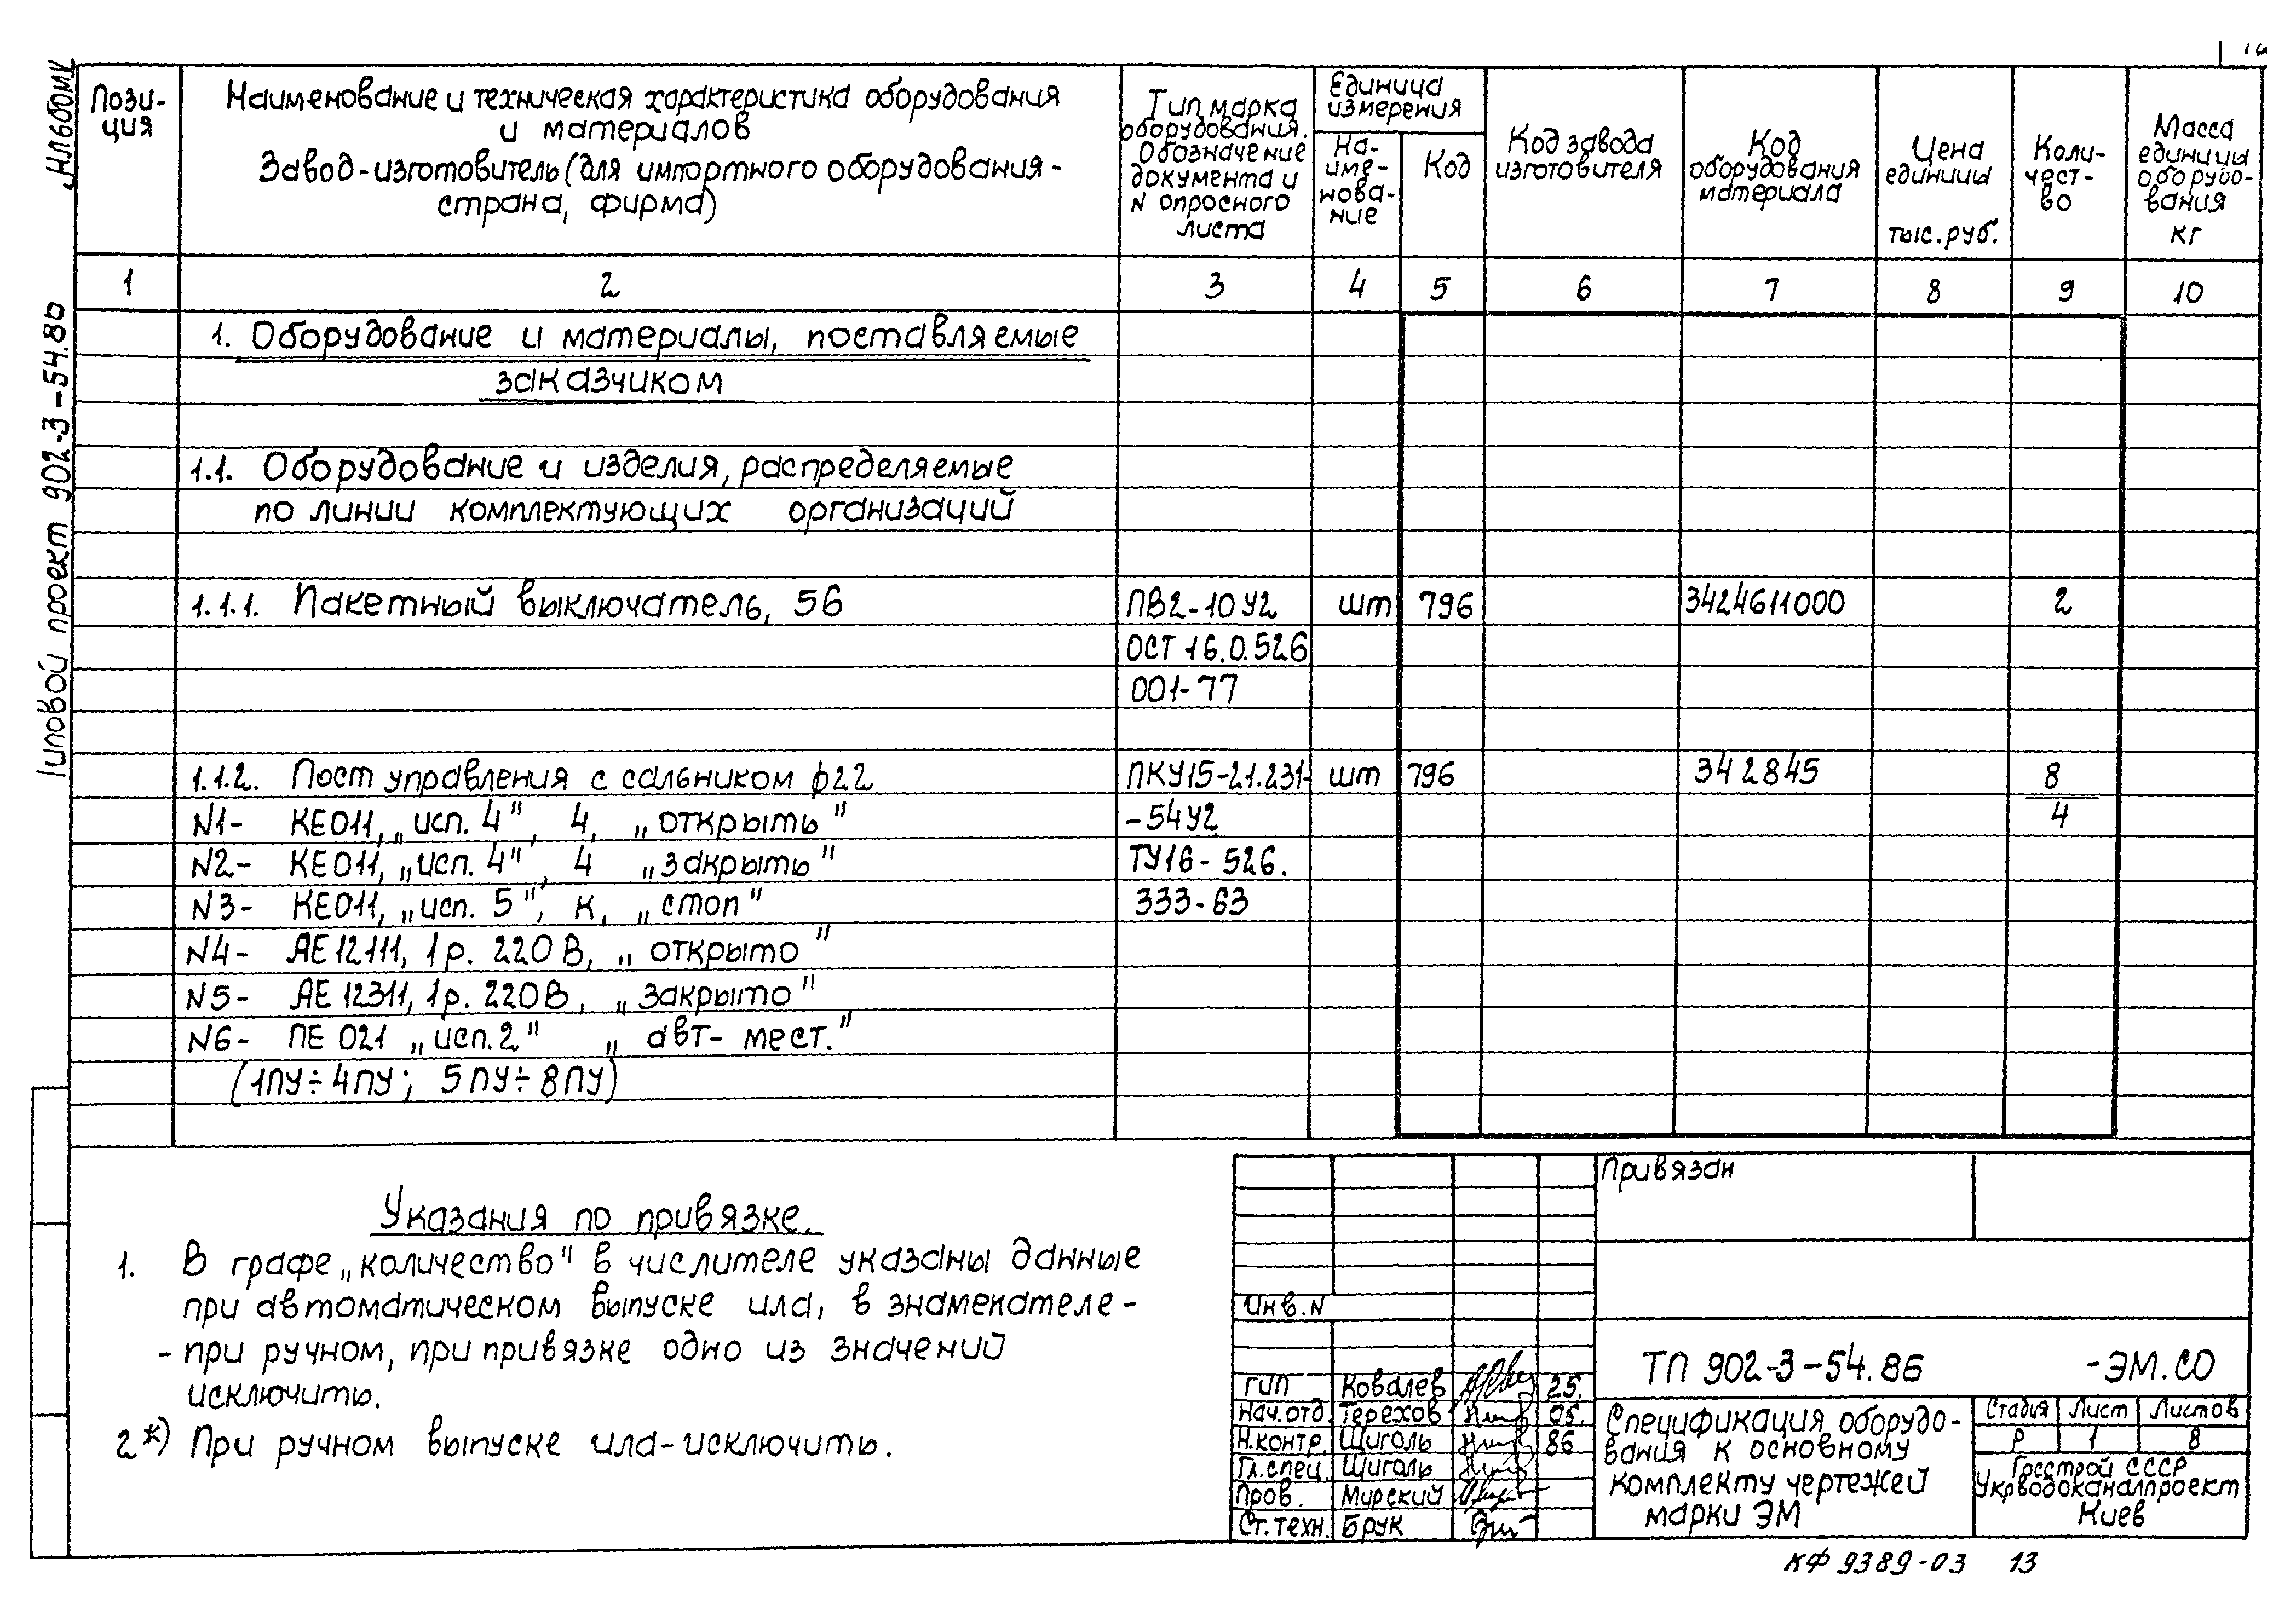 Альбом V
Типовой проект 902-3-54.86
Пози-
ция
Наименование и техническая характеристика оборудования
и материалов
Завод-изготовитель (для импортного оборудования-
страна, фирма)
Тип, марка
оборудования.
Обозначение
документа и
N опросного
листа
Единица
измерения
На-
име-
нова-
ние
Код
Код завода
изготовителя
Код
оборудования
материала
Цена
единицы
тыс.руб.
Коли-
чест-
во
Масса
единицы
оборудо-
вания
кг
1 2 3 4 5 6 7 8 9 10
1. Оборудование и материалы, поставляемые
заказчиком
1.1. Оборудование и изделия, распределяемые
по линии комплектующих организаций
1.1.1. Пакетный выключатель, 56 ПВ2-10У2 шт 796 3424611000 2
ОСТ 16.0.526
001-77
1.1.2. Пост управления с сальником ф22 ПКУ15-21.231- шт 796 342845 8
N1- КЕ011, „исп. 4", 4, „открыть" -54У2 4
N2- КЕ011, „исп. 4", 4 „закрыть" ТУ16-526.
N3- КЕ011, „исп. 5", к, „стоп" 333-63
N4- АЕ12111, 1р. 220В, „открыто"
N5- АЕ12311, 1р. 220В, „закрыто"
N6- ПЕ 021 „исп.2" „авт- мест."
(1ПУ÷4ПУ; 5ПУ÷8ПУ)
Указания по привязке.
1. В графе „количество" в числителе указаны данные
при автоматическом выпуске ила, в знаменателе-
-при ручном, при привязке одно из значений
исключить.
2*) При ручном выпуске ила-исключить.
Привязан
Инв.N
ТП 902-3-54.86 -ЭМ.СО
ГИП Ковалев 25.
Нач.отд Терехов 05.
Н.контр. Щиголь 86
Гл.спец. Щиголь
Пров. Мирский
Ст.техн. Брук
Спецификация оборудо-
вания к основному
комплекту чертежей
марки ЭМ
Стадия Лист Листов
Р 1 8
Госстрой СССР
Укрводоканалпроект
Киев
КФ 9389-03 13